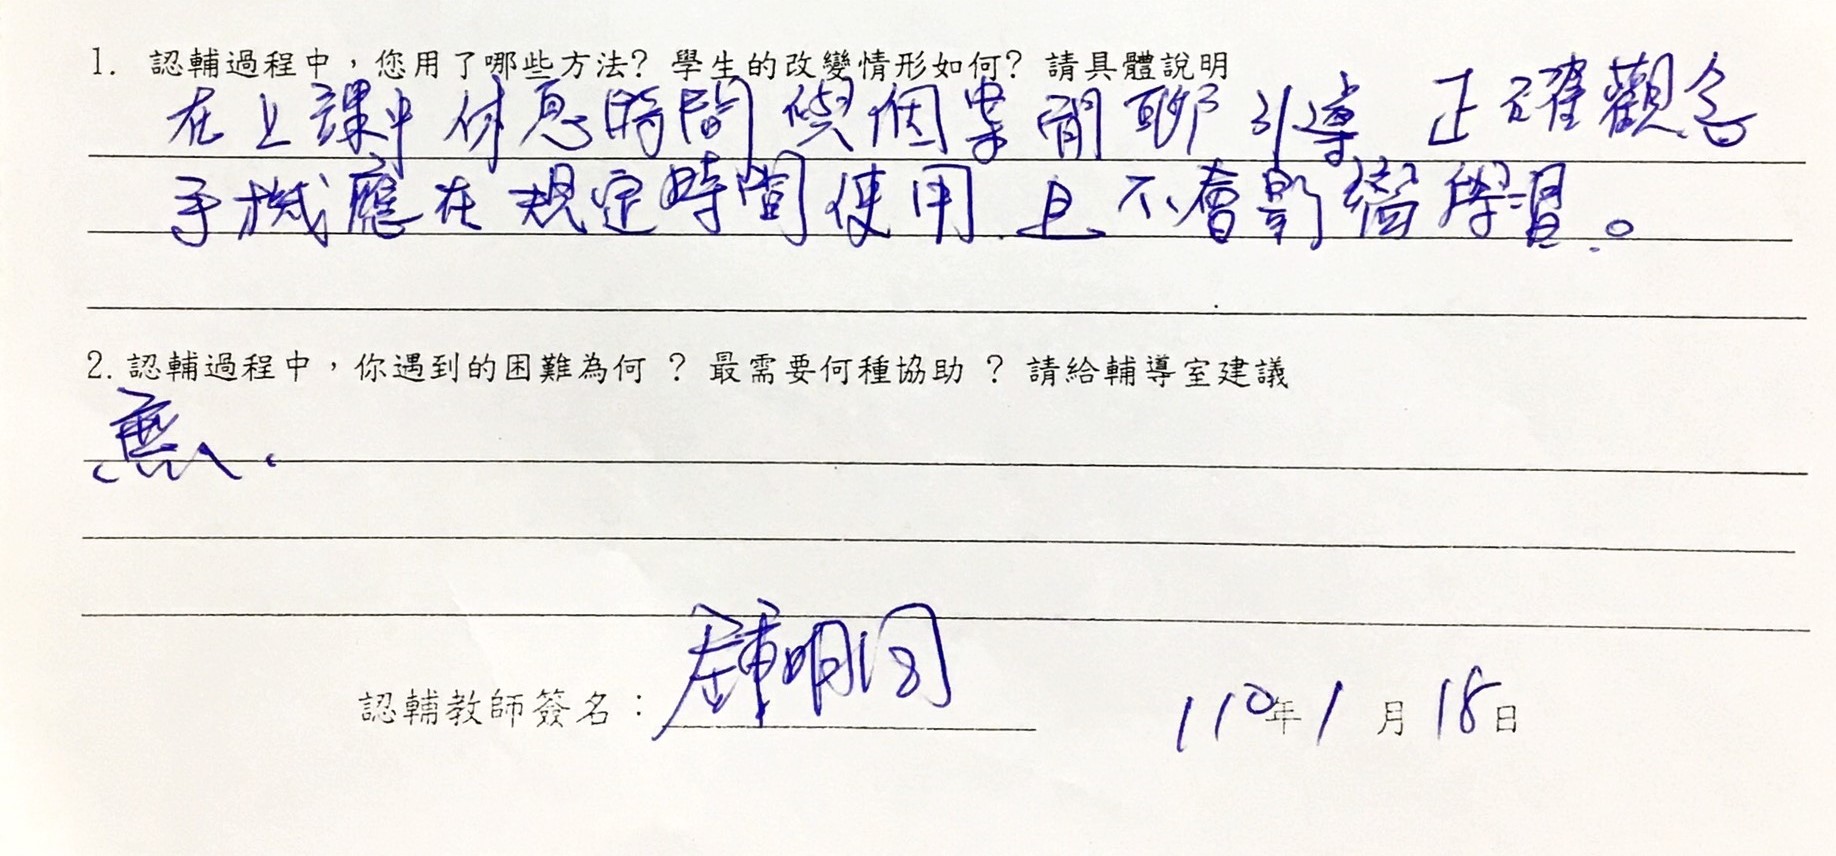 1. 認輔過程中，您用了哪些方法? 學生的改變情形如何? 請具體說明
在上課中休息時間與個案閒聊引導 正確觀念
手機應在規定時間使用.且不會影響學習。
2.認輔過程中，你遇到的困難為何 ? 最需要何種協助 ? 請給輔導室建議
無.
認輔教師簽名： 110年1月18日